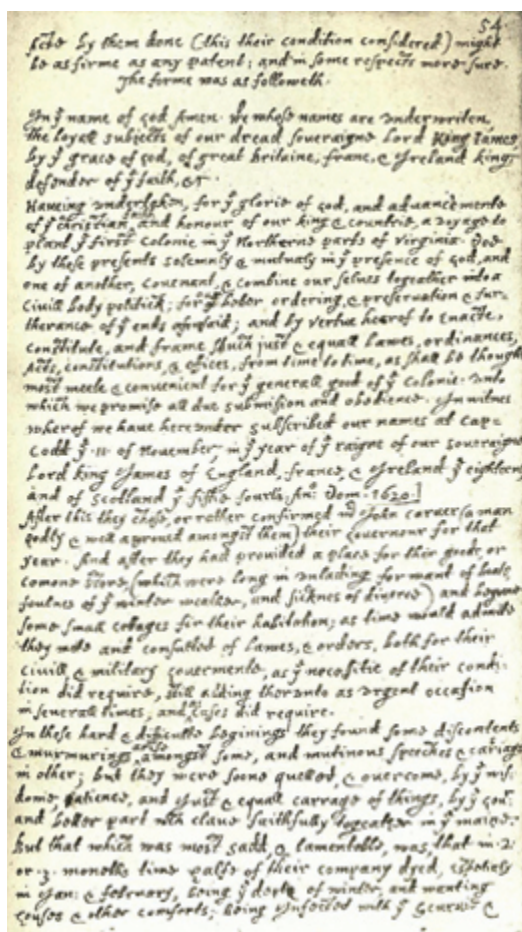 54
Acte by them done (this their condition considered) might
be as firme as any patent; and in some respects more sure.
The forme was as followeth.
In yͤ name of god Amen. We whose names are underwriten,
the loyall subjects of our dread soueraigne Lord King James,
by yͤ grace of god, of great britaine, franc, & Ireland king,
defender of yͤ faith, &c
Haueing undertaken, for yͤ glorie of god, and aduancemente
of yͤ christian faith and honour of our king & countrie, a voyage to
plant yͤ first colonie in yͤ Northerne parts of Virginia. doe
by these presents solemnly & mutualy in yͤ presence of god, and
one of another, couenant, & combine our selues togeather into a
Ciuill body politick; for our better ordering, & preseruation & fur-
therance of yͤ ends aforesaid; and by vertue hearof to enacte,
constitute, and frame shuch just & equall lawes, ordinances,
Acts, constitutions, & offices, from time to time, as shall be thought
most meete & conuenient for yͤ generall good of yͤ Colonie: unto
which we promise all due submission and obedience. In witnes
wherof we have hereunder subscribed our names at Cap-
Codd yͤ .11. of Nouember, in yͤ year of yͤ raigne of our soueraigne
Lord king James of England, france, & Ireland yͤ eighteenth
and of Scotland yͤ fiftie fourth. An: Dom. 1620.]
After this they chose, or rather confirmed mr John caruer (a man
godly & well approued amongst them) their Gouernour for that
year. And after they had prouided a place for their goods, or
comone store, (which were long in unlading for want of boats,
foulnes of yͤ winter weather, and sicknes of diuerce) and begune
some small cotages for their habitation; as time would admitte
they mette and consulted of lawes, & orders, both for their
ciuill, & military Gouermente, as yͤ necessitie of their condi-
tion did require, still adding therunto as urgent occasion
in seuerall times; and as cases did require.
In these hard & difficulte beginings they found some discontents
& murmurings arise amongst some, and mutinous speeches & cariags
in other; but they were soone quelled, & overcome, by yͤ wis-
dome, patience, and just & equall carrage of things, by yͤ Gour
and better part wch claue faithfully togeather in yͤ maine.
But that which was most sadd, & lamentable, was, that in .2.
or .3. moneths time halfe of their company dyed, espetialy
in Jan: & february, being yͤ depth of winter, and wanting
houses & other comforts; being Infected with yͤ Scuruie &